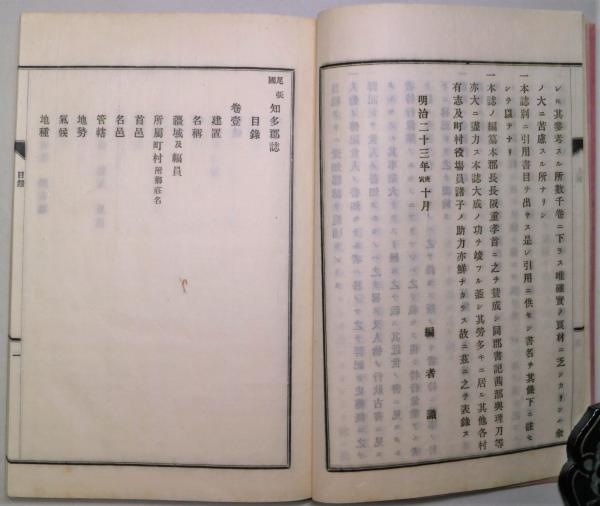 シ凡其參考スル所數千卷ニ下ラス唯確實ノ良材ニ乏シカリシハ余
ノ大ニ苦慮スル所ナリシ
一本誌別ニ引用書目ヲ出サス是レ引用ニ供セシ書名ヲ其條下ニ註セ
シヲ以テナリ
一本誌ノ編纂本郡長長阪重孝首ニ之ヲ賛成シ同郡書記茜部與理刀等
亦大ニ盡力ス本誌大成ノ功ヲ竣フル蓋シ其勞多キニ居ル其他各村
有志及町村役場員諸子ノ助力亦鮮ナカラス故ニ茲ニ之ヲ表錄ス
明治二十三年庚寅十月
編者識
尾張國知多郡誌
目錄
卷壹
建置
名稱
疆域及幅員
所屬町村附鄕莊名
首邑
名邑
管轄
地勢
氣候
地種
目錄
一